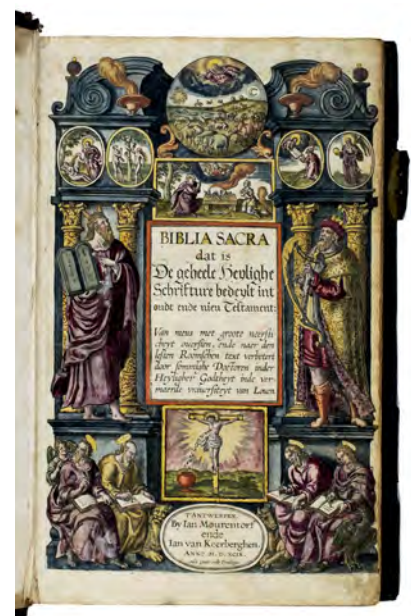 BIBLIA SACRA
dat is
De geheele Heylighe
Schrifture bedeylt int
oudt ende nieu Testament:
Van nieus met groote neersti-
cheyt ouersien, ende naer den
lesten Roomschen text verbetert
door sommighe Doctoren inder
Heyligher Godtheyt inde ver-
maerde vniuersiteyt van Louen
T'ANTWERPEN,
By Ian Mourentorf
ende
Ian van Keerberghen.
ANNO M. D. XCIX.